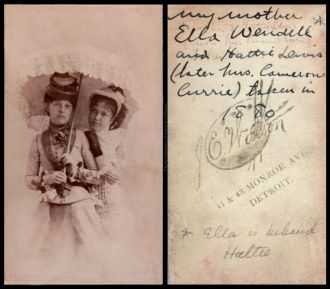 my mother
Ella Wendell *
and Hattie Lewis
(later Mrs. Cameron
Currie) taken in
1880
E. Watson
41 & 43 MONROE AVE.
DETROIT.
* Ella is behind
Hattie